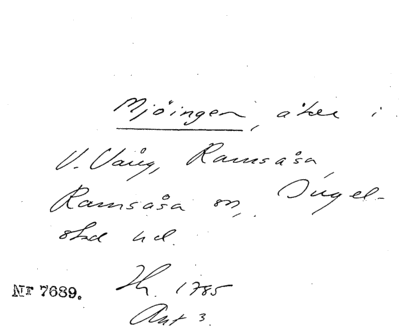 Mjöingen, åker i
V. Vång, Ramsåsa,
Ramsåsa sn, Ingel-
stad hd.
Nr 7689. Th. 1785
Ant 3.